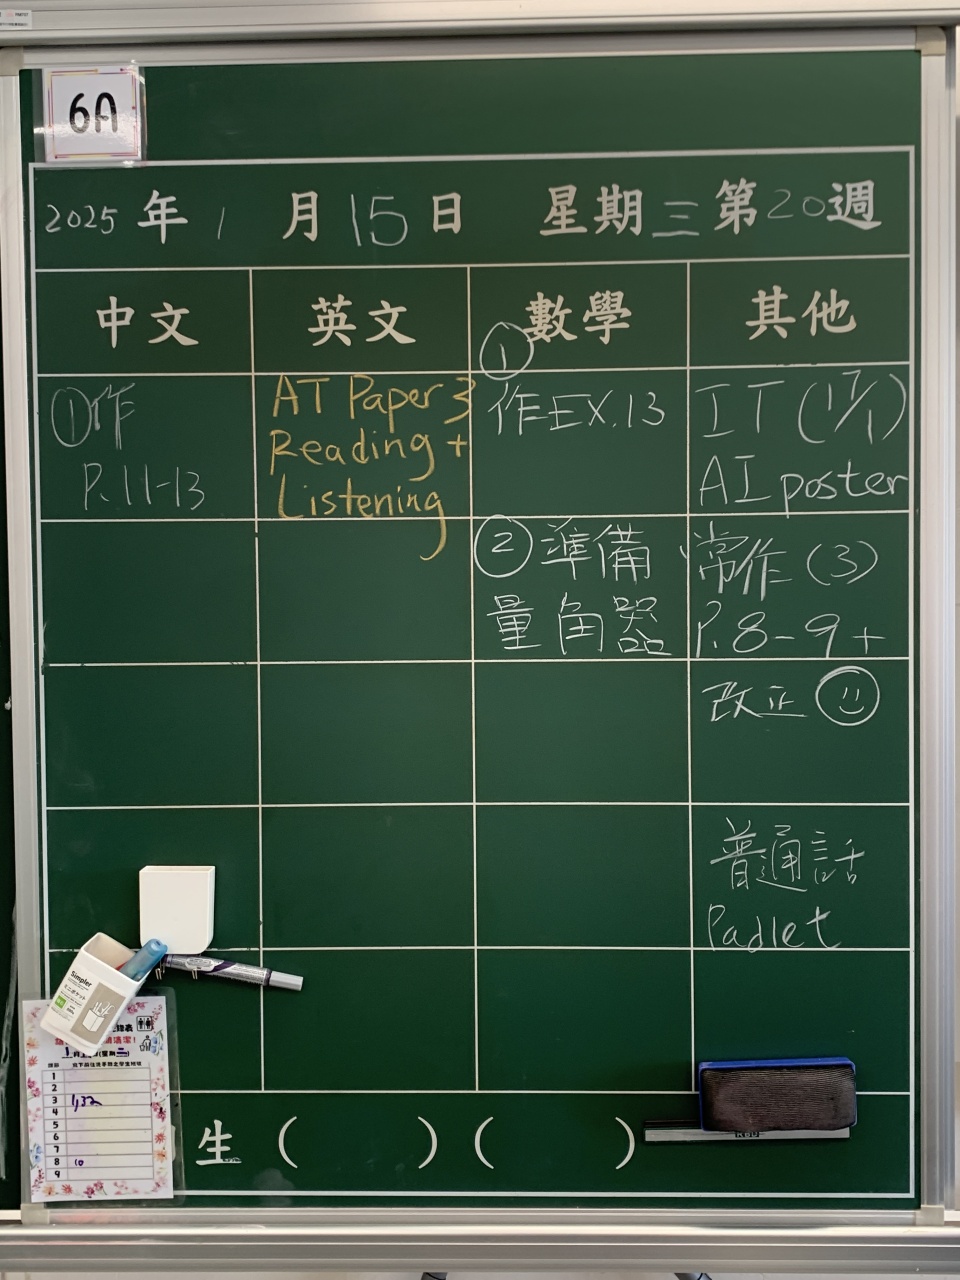 6A
2025 年 1 月 15 日 星期 三 第 20 週
中文 英文 數學 其他
①作
P.11-13
AT Paper 3
Reading +
Listening
①
作EX.13
IT (17/1)
AI poster
② 準備
量角器
常作 (3)
P.8-9+
改正
普通話
Padlet
Simpler
1
2
3 1,32
4
5
6
7
8 10
9
生 ( ) ( )